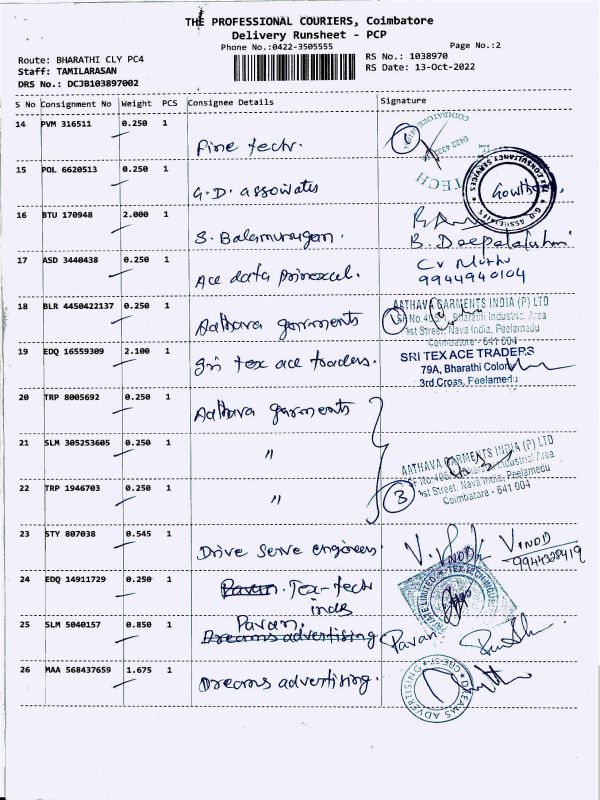 THE PROFESSIONAL COURIERS, Coimbatore
Delivery Runsheet - PCP
Phone No.:0422-3505555
Page No.:2
Route: BHARATHI CLY PC4
RS No.: 1038970
Staff: TAMILARASAN
RS Date: 13-Oct-2022
DRS No.: DCJB103897002
S No Consignment No Weight PCS Consignee Details Signature
14 PVM 316511 0.250 1 Pine techr. 1
15 POL 6620513 0.250 1 G.D. associates Gowtham
16 BTU 170948 2.000 1 S. Balamurugan. B. Deepalakshmi
17 ASD 3440438 0.250 1 Ace data Cv Muthu
9944940104
18 BLR 4450422137 0.250 1 Aathava garments 1
AATHAVA GARMENTS INDIA (P) LTD
Bharathi Industrial Area
1st Street, Nava India, Peelamedu
Coimbatore - 641 004
19 EDQ 16559309 2.100 1 Sri tex ace traders.
SRI TEX ACE TRADERS
79A, Bharathi Colony
3rd Cross, Peelamedu
20 TRP 8005692 0.250 1 Aathava garments
21 SLM 305253605 0.250 1 "
AATHAVA GARMENTS INDIA (P) LTD
Industrial Area
1st Street, Nava India, Peelamedu
Coimbatore - 641 004
22 TRP 1946703 0.250 1 " 3
23 STY 807038 0.545 1 Drive Serve engineers VINOD
9944328419
24 EDQ 14911729 0.250 1 Pavan. Tex-tech
inds
25 SLM 5040157 0.850 1 Pavan.
Dreams advertising Pavan
26 MAA 568437659 1.675 1 Dreams advertising.
DREAMS ADVERTISING